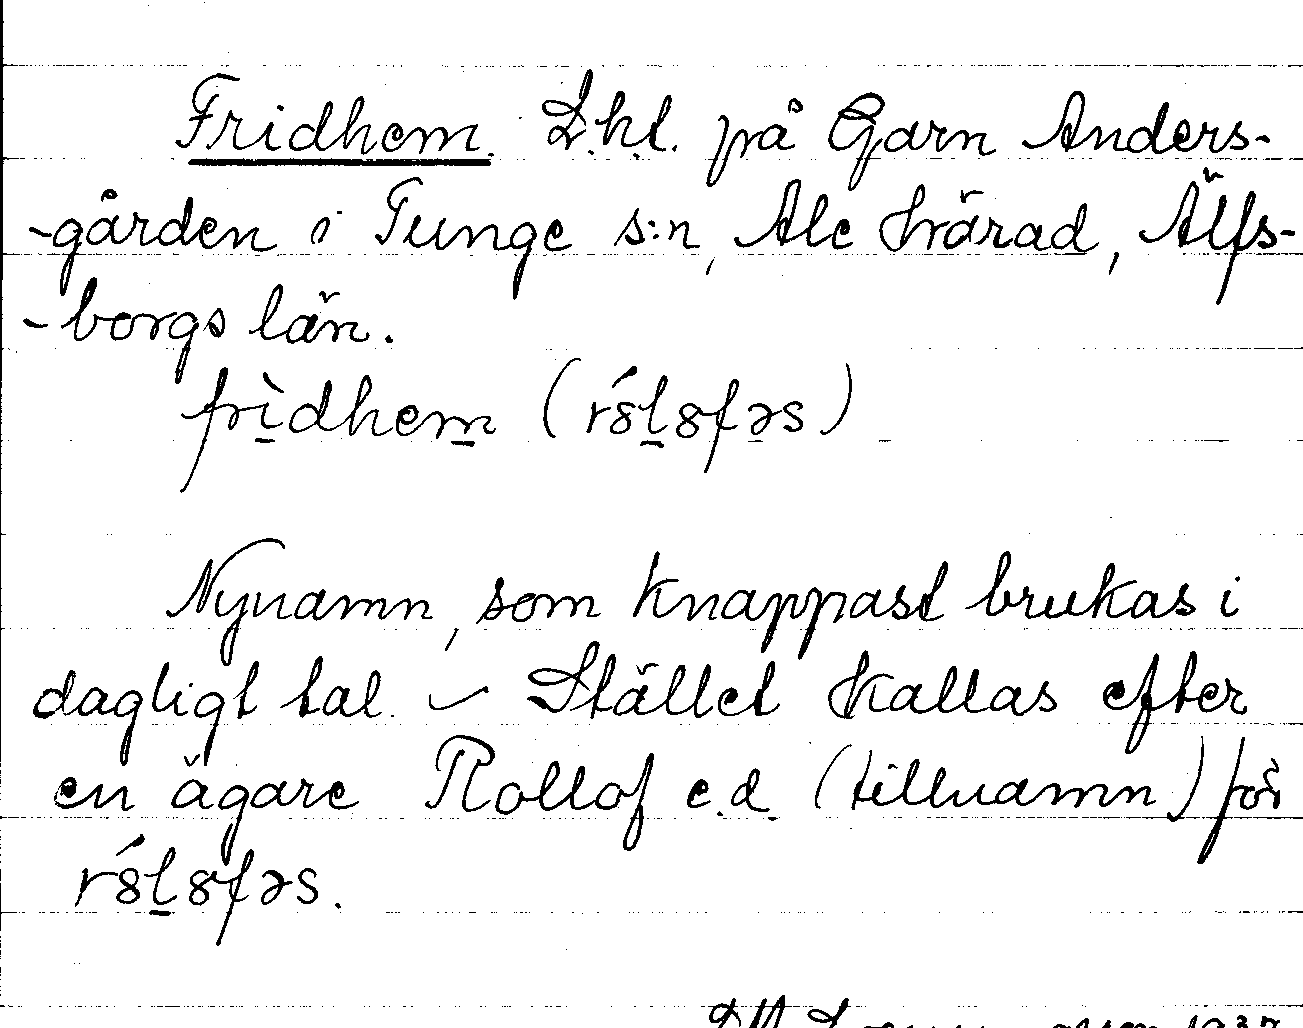 Fridhem. L.h.l. på Garn Anders-
-gården i Tunge s:n, Ale härad, Älfs-
-borgs län.
frìdhem (rólofəs)
Nynamn, som knappast brukas i
dagligt tal. – Stället kallas efter
en ägare Rollof e.d. (tillnamn) för
rólofəs.